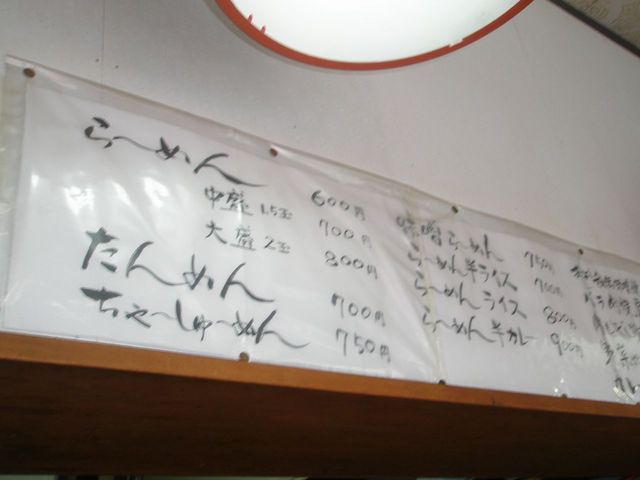 らーめん 600円
中盛 1.5玉 700円
大盛 2玉 800円
たんめん 700円
ちゃーしゅーめん 750円
味噌らーめん 750円
らーめん半ライス 700円
らーめんライス 800円
らーめん半カレー 900円